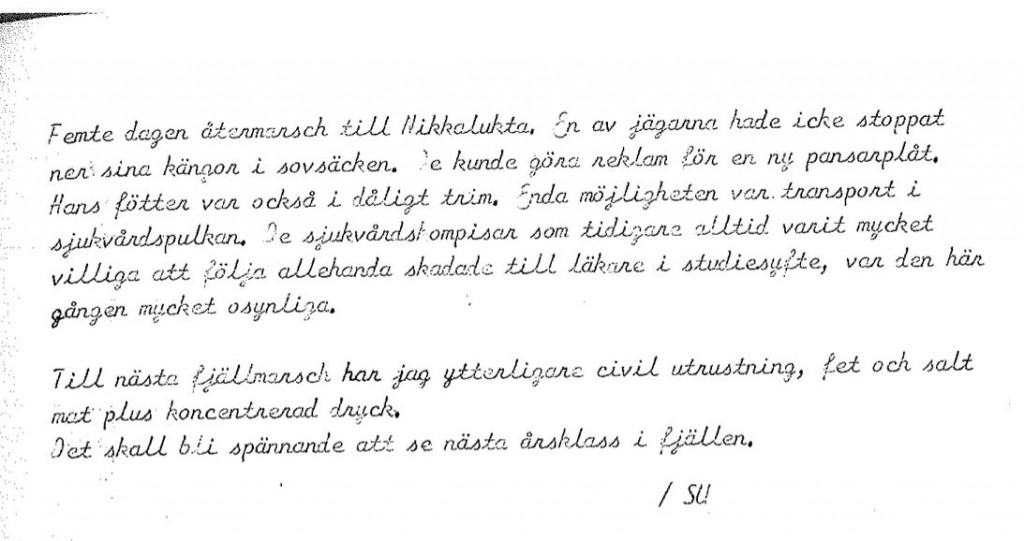 Femte dagen återmarsch till Nikkalukta. En av jägarna hade icke stoppat
ner sina kängor i sovsäcken. De kunde göra reklam för en ny pansarplåt.
Hans fötter var också i dåligt trim. Enda möjligheten var transport i
sjukvårdspulkan. De sjukvårdskompisar som tidigare alltid varit mycket
villiga att följa allehanda skadade till läkare i studiesyfte, var den här
gången mycket osynliga.
Till nästa fjällmarsch har jag ytterligare civil utrustning, fet och salt
mat plus koncentrerad dryck.
Det skall bli spännande att se nästa årsklass i fjällen.
/ SU